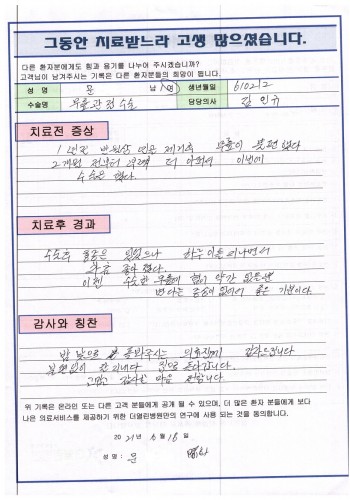 그동안 치료받느라 고생 많으셨습니다.
다른 환자분에게도 힘과 용기를 나누어 주시겠습니까?
고객님이 남겨주시는 기록은 다른 환자분들의 희망이 됩니다.
성 명 문 남 여 생년월일 610212
수술명 무릎관절수술 담당의사 김
치료전 증상
1년전 연골 제거후 무릎이 불편했다
2개월 전부터 더 아파서 이번에
수술을 했다.
치료후 경과
수술후 통증은 있었으나 하루 이틀 지나면서
차츰 좋아졌다.
이젠 수술한 무릎에 힘이 약간 없을뿐
별다른 증상 없어서 좋은 기분이다.
감사와 칭찬
밤낮으로 돌봐주시는 의료진께 감사드립니다
불편없이 잘 지내다 집으로 돌아갑니다.
고맙고 감사한 마음 전합니다.
위 기록은 온라인 또는 다른 고객 분들에게 공개 될 수 있으며, 더 많은 환자 분들에게 보다
나은 의료서비스를 제공하기 위한 더열린병원만의 연구에 사용 되는 것을 동의합니다.
2021년 6월 16일
성명 : 문